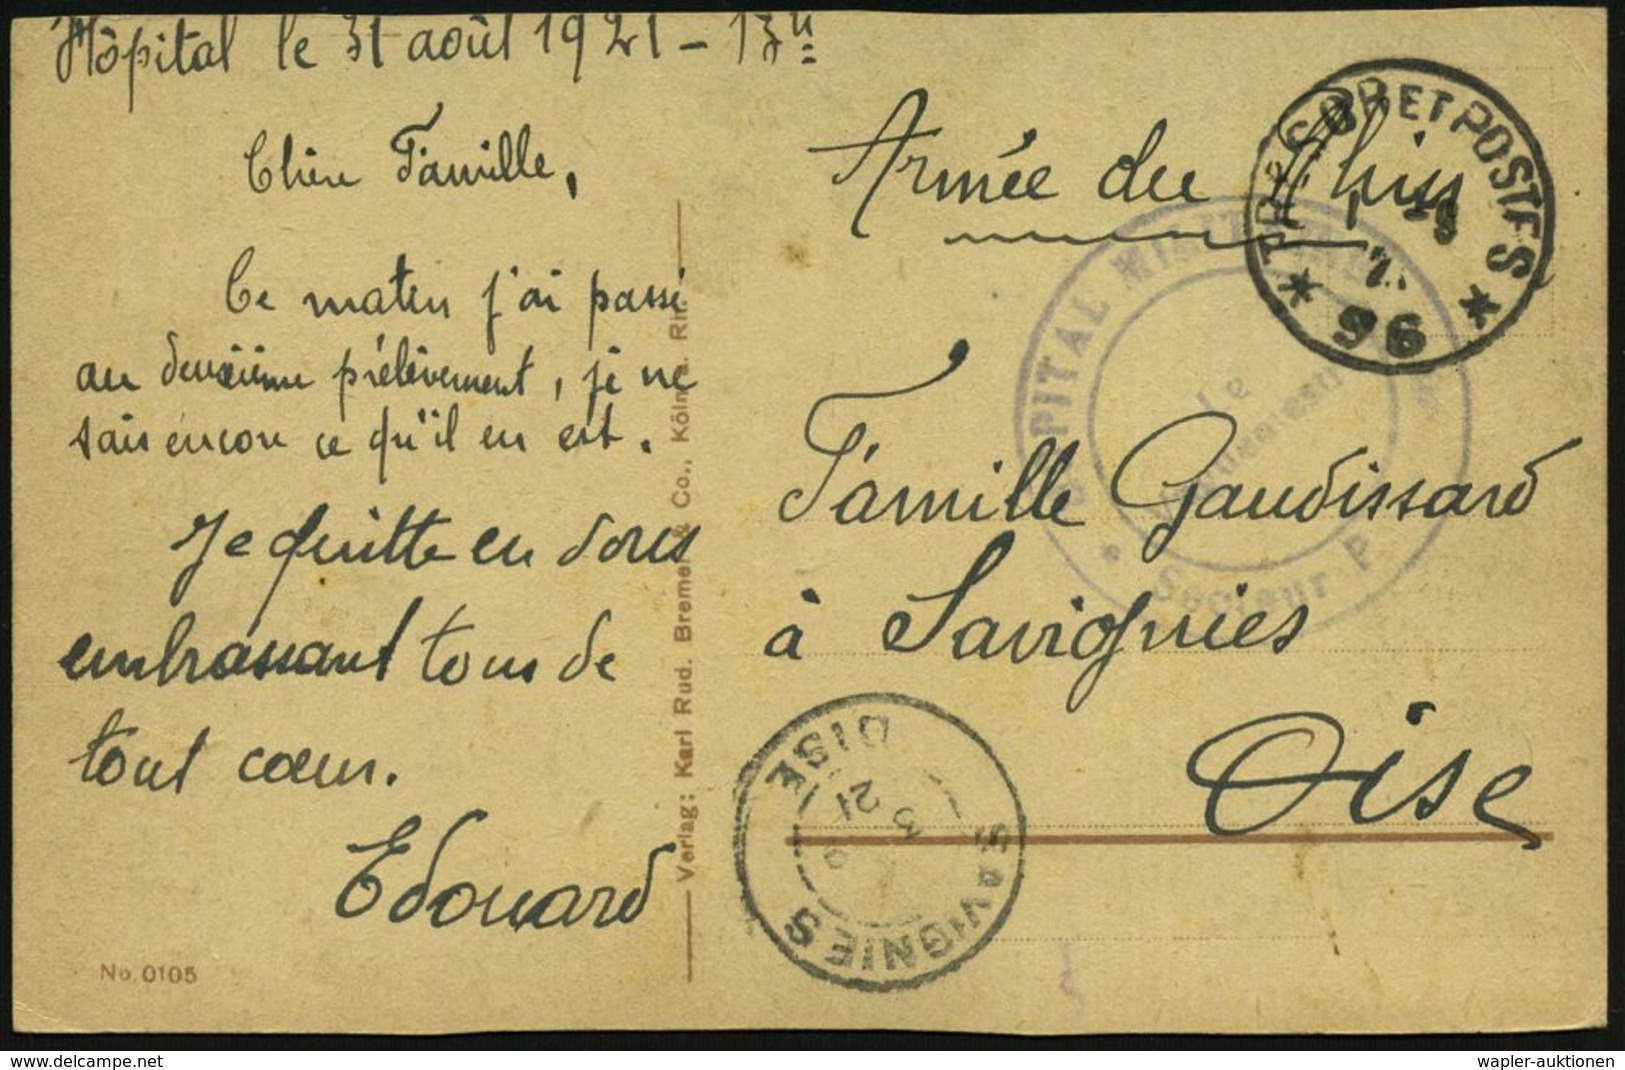 Hôpital le 31 août 1921 - 13h
Chère Famille,
Ce matin j'ai passé
au deuxième prélèvement, je ne
sais encore ce qu'il en est.
Je quitte en vous
embrassant tous de
tout cœur.
Edouard
No. 0105
Verlag: Karl Rud. Bremer & Co., Köln a. Rh.
Armée du Rhin
TRESOR ET POSTES
* 96 *
HOPITAL MILITAIRE
de
Secteur P.
Famille Gaudissard
à Savignies
Oise
SAVIGNIES
OISE
3
21
www.delcampe.net
wapler-auktionen